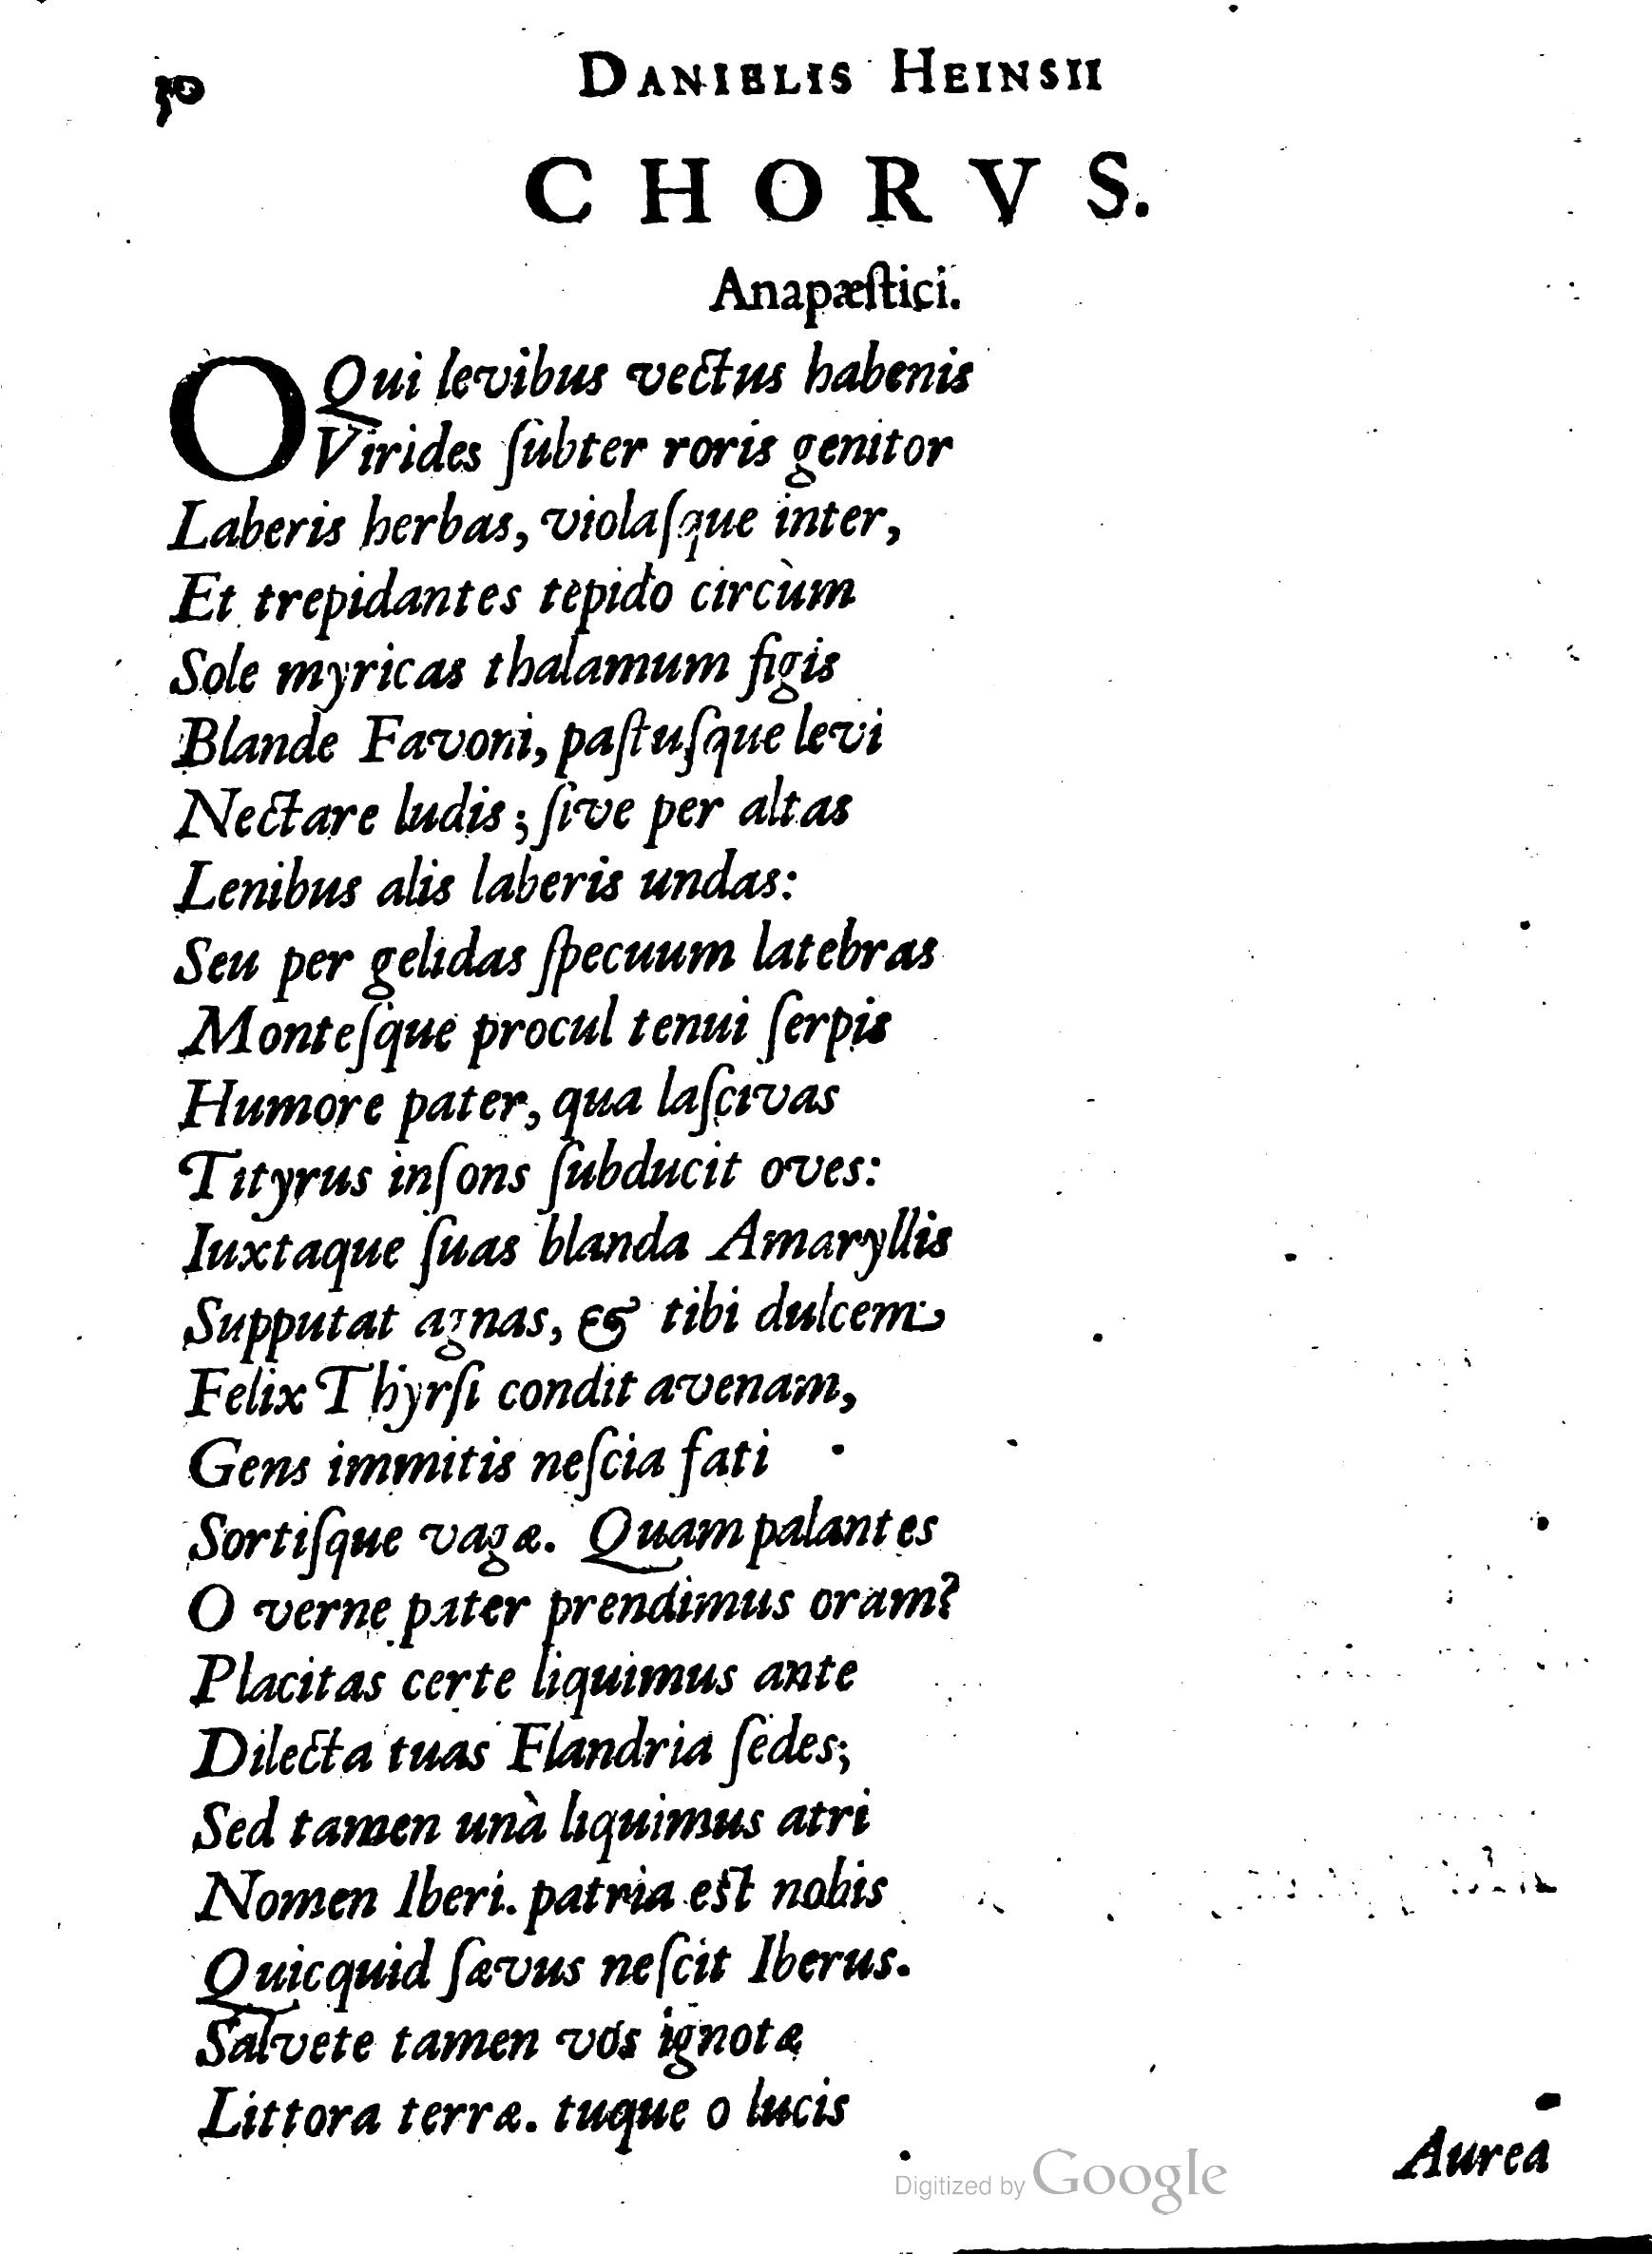 50
DANIELIS HEINSII
CHORVS.
Anapæſtici.
O Qui levibus vectus habenis
Virides ſubter roris genitor
Laberis herbas, violaſque inter,
Et trepidantes tepido circùm
Sole myricas thalamum figis
Blande Favoni, paſtuſque levi
Nectare ludis; ſive per altas
Lenibus alis laberis undas:
Seu per gelidas ſpecuum latebras
Monteſque procul tenui ſerpis
Humore pater, qua laſcivas
Tityrus inſons ſubducit oves:
Iuxtaque ſuas blanda Amaryllis
Supputat agnas, & tibi dulcem
Felix Thyrſi condit avenam,
Gens immitis neſcia fati
Sortiſque vagæ. Quam palantes
O verne pater prendimus oram?
Placitas certe liquimus ante
Dilecta tuas Flandria ſedes;
Sed tamen unà liquimus atri
Nomen Iberi. patria eſt nobis
Quicquid ſævus neſcit Iberus.
Salvete tamen vos ignotæ
Littora terræ. tuque o lucis
Aurea
Digitized by Google